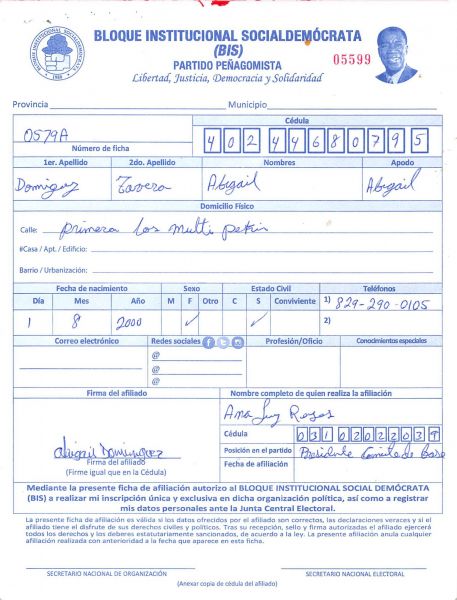 BLOQUE INSTITUCIONAL SOCIALDEMÓCRATA
(BIS)
PARTIDO PEÑAGOMISTA
Libertad, Justicia, Democracia y Solidaridad
05599
BLOQUE INSTITUCIONAL SOCIALDEMOCRATA
Provincia Municipio
0579A
Número de ficha
Cédula
40244680795
1er. Apellido 2do. Apellido Nombres Apodo
Dominguez Tavera Abigail Abigail
Domicilio Físico
Calle: primera los multi
#Casa / Apt. / Edificio:
Barrio / Urbanización:
Fecha de nacimiento Sexo Estado Civil Teléfonos
Día Mes Año M F Otro C S Conviviente 1) 829-290-0105
1 8 2000 ✓ ✓ 2)
Correo electrónico Redes sociales Profesión/Oficio Conocimientos especiales
@
@
@
Firma del afiliado Nombre completo de quien realiza la afiliación
Ana Luz Reyes
Cédula 0310202203
Abigail Dominguez
Firma del afiliado
(Firme igual que en la Cédula)
Posición en el partido Presidente Comité de Base
Fecha de afiliación
Mediante la presente ficha de afiliación autorizo al BLOQUE INSTITUCIONAL SOCIAL DEMÓCRATA
(BIS) a realizar mi inscripción única y exclusiva en dicha organización política, así como a registrar
mis datos personales ante la Junta Central Electoral.
La presente ficha de afiliación es válida si los datos ofrecidos por el afiliado son correctos, las declaraciones veraces y si el
afiliado tiene el disfrute de sus derechos civiles y políticos. Tras su recepción, sello y firma autorizadas el afiliado ejercerá
todos los derechos y los deberes estatutariamente sancionados, de acuerdo a la ley. La presente afiliación anula cualquier
afiliación realizada con anterioridad a la fecha que aparece en esta ficha.
SECRETARIO NACIONAL DE ORGANIZACIÓN SECRETARIO NACIONAL ELECTORAL
(Anexar copia de cédula del afiliado)